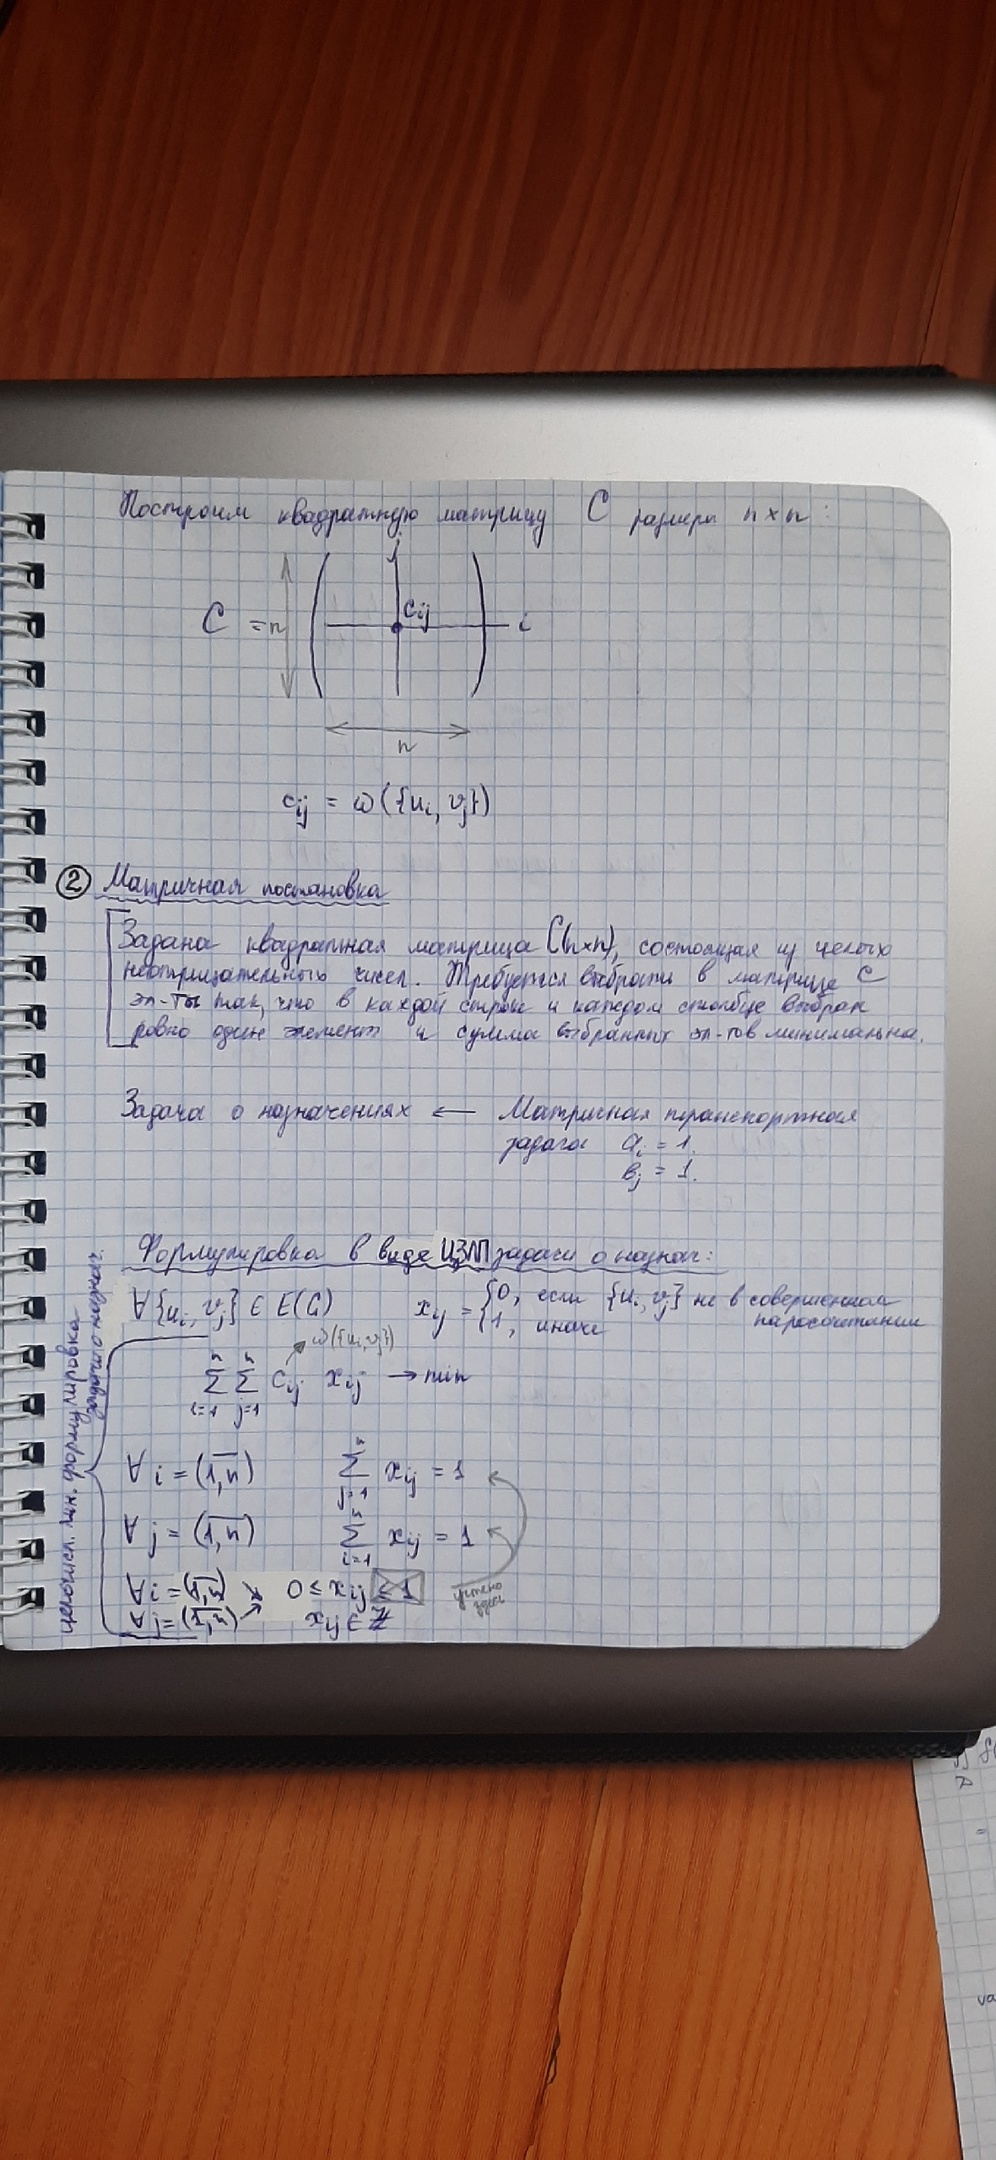 Построим квадратную матрицу C размеры n×n:
j
C = n
c_ij
i
n
c_ij = ω({u_i, v_j})
② Матричная постановка
Задана квадратная матрица C(n×n), состоящая из целых
неотрицательных чисел. Требуется выбрать в матрице C
эл-ты так, что в каждой строке и каждом столбце выбран
ровно один элемент и сумма выбранных эл-тов минимальна.
Задача о назначениях ← Матричная транспортная
задача a_i = 1.
b_j = 1.
Формулировка в виде ЦЗЛП задачи о назнач:
∀{u_i, v_j} ∈ E(G) x_ij = {0, если {u_i, v_j} не в совершенном паросочетании
1, иначе
ω({u_i, v_j})
∑_{i=1}^{n} ∑_{j=1}^{n} c_ij x_ij → min
∀ i = (1,n) ∑_{j=1}^{n} x_ij = 1
∀ j = (1,n) ∑_{i=1}^{n} x_ij = 1
∀ i = (1,n) ↘ 0 ≤ x_ij ≤ 1
∀ j = (1,n) → x_ij ∈ ℤ
учтено
здесь
целочисл. лин. формулировка
задачи о назнач.
va